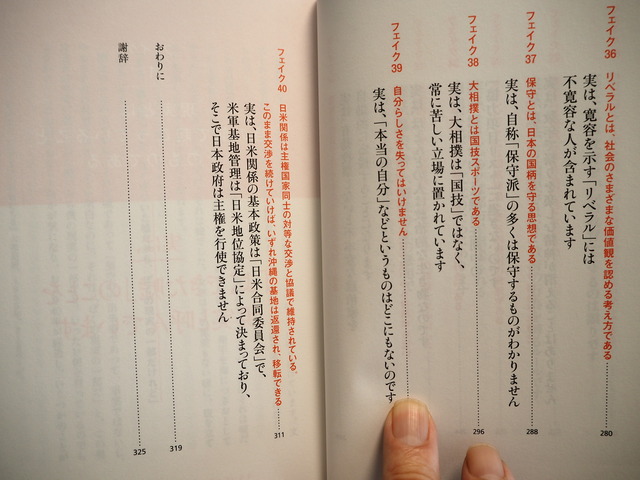 フェイク 36 リベラルとは、社会のさまざまな価値観を認める考え方である
実は、寛容を示す「リベラル」には
不寛容な人が含まれています …… 280
フェイク 37 保守とは、日本の国柄を守る思想である
実は、自称「保守派」の多くは保守するものがわかりません …… 288
フェイク 38 大相撲とは国技スポーツである
実は、大相撲は「国技」ではなく、
常に苦しい立場に置かれています …… 296
フェイク 39 自分らしさを失ってはいけません
実は、「本当の自分」などというものはどこにもないのです
フェイク 40 日米関係は主権国家同士の対等な交渉と協議で維持されている。
このまま交渉を続けていけば、いずれ沖縄の基地は返還され、移転できる …… 311
実は、日米関係の基本政策は「日米合同委員会」で、
米軍基地管理は「日米地位協定」によって決まっており、
そこで日本政府は主権を行使できません
おわりに …… 319
謝辞 …… 325